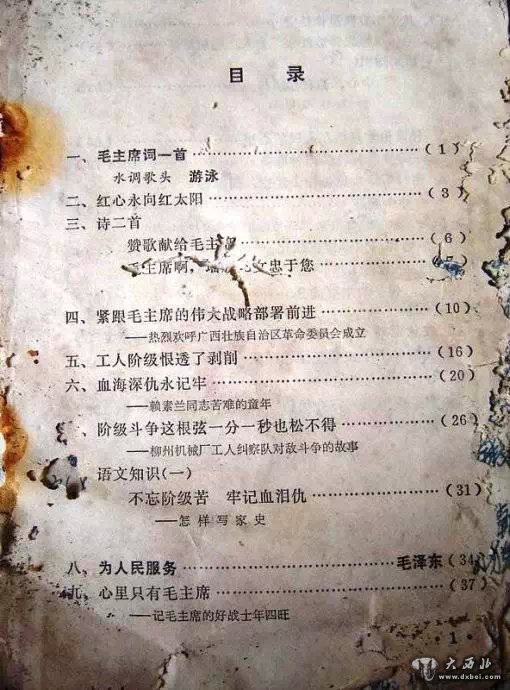 目 录
一、毛主席词一首……………………(1)
水调歌头 游泳
二、红心永向红太阳…………………(3)
三、诗二首
赞歌献给毛主……………………(6)
主席啊，忠于您
四、紧跟毛主席的伟大战略部署前进…………(10)
——热烈欢呼广西壮族自治区革命委员会成立
五、工人阶级恨透了剥削………………(16)
六、血海深仇永记牢…………………(20)
——赖素兰同志苦难的童年
、阶级斗争这根弦一分一秒也松不得…………(26)
——柳州机械厂工人纠察队对敌斗争的故事
语文知识(一)
不忘阶级苦 牢记血泪仇……………(31)
——怎样写家史
八、为人民服务……………………毛泽东(34)
九、心里只有毛主席…………………(37)
——记毛主席的好战士年四旺
· 1 ·
大西北
www.dxbei.com